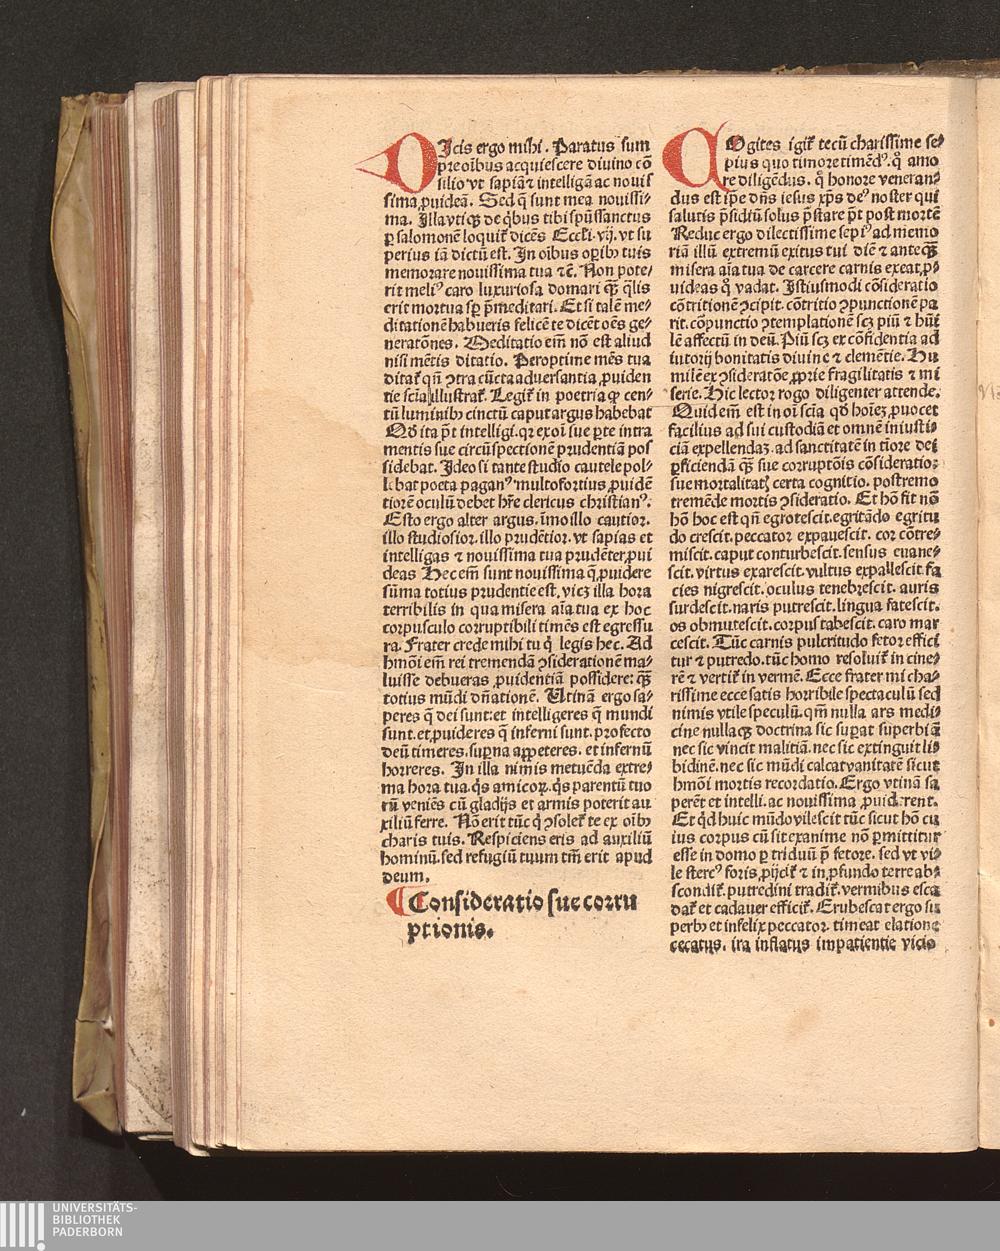 DIcis ergo mihi. Paratus sum
p̱re oībus acquiescere diuino cō
silio vt sapiā ⁊ intelligā ac nouiſ
ſima ꝓuideā. Sed q̄ sunt mea nouiſſi⸗
ma. Illa vtiqꝫ de q̇bus tibi spūssanctus
ꝑ salomonē loquit᷑ dicēs Eccli. vij. vt su
perius iā dictū est. In oībus oꝑibꝰ tuis
memorare nouissima tua ⁊c̄. Non pote⸗
rit meliꝰ caro luxuriosa domari qꝫ̄ q̄lis
erit mortua sꝑ p̄meditari. Et si talē me⸗
ditationē habueris felicē te dicēt oēs ge⸗
neratōnes. Meditatio em̄ nō est aliud
nisi mētis ditatio. Peroptime mēs tua
ditat᷑ qn̄ ꝯtra cūcta aduersantia ꝓuiden
tie scīa illustrat᷑. Legit᷑ in poetria qꝙ cen⸗
tū luminibꝰ cinctū caput argus habebat
Qd̄ ita p̄t intelligi. qꝛ ex oī sue ꝑte intra
mentis sue circūspectionē prudentiā pos
sidebat. Ideo si tante studio cautele pol⸗
lebat poeta paganꝰ multo fortius ꝓuidē
tiorē oculū debet hr̄e clericus christianꝰ.
Esto ergo alter argus. īmo illo cautior.
illo studiosior. illo prudētior. vt sapias et
intelligas ⁊ nouissima tua prudēter ꝓui
deas Hec em̄ sunt nouissima q̄ ꝓuidere
sūma totius prudentie est. vicꝫ illa hora
terribilis in qua misera aīa tua ex hoc
corpusculo corruptibili timēs est egressu
ra. Frater crede mihi tu q̇ legis hec. Ad
hmōi em̄ rei tremendā ꝯsiderationē ma⸗
luisse debueras ꝓuidentiā possidere: qꝫ̄
totius mūdi dn̄ationē. Utinā ergo sa⸗
peres q̄ dei sunt: et intelligeres q̄ mundi
sunt. et ꝓuideres q̄ inferni sunt. profecto
deū timeres. suꝑna appeteres. et infernū
horreres. In illa nimis metuēda extre⸗
ma hora tua. q̇s amicoꝝ. q̇s parentū tuo
rū veniēs cū gladijs et armis poterit au
xiliū ferre. Nō erit tūc q̇ ꝯsolet᷑ te ex oībꝰ
charis tuis. Respiciens eris ad auxiliū
hominū. sed refugiū tuum tm̄ erit apud
deum.
¶ Consideratio sue corru
ptionis.
COgites igit᷑ tecū charissime se⸗
pius quo timore timēdꝰ. q̊ amo
re diligēdus. q̊ honore veneran⸗
dus est ip̄e dn̄s iesus xp̄s deꝰ noster qui
salutis p̄sidiū solus p̄stare p̄t post mortē
Reduc ergo dilectissime sepiꝰ ad memo
riā illū extremū exitus tui diē ⁊ ante qꝫ̄
misera aīa tua de carcere carnis exeat. ꝓ⸗
uideas q̊ vadat. Istiusmodi cōsideratio
cōtritionē ꝯcipit. cōtritio ꝯpunctionē pa
rit. cōpunctio ꝯtemplationē scꝫ piū ⁊ hūi
lē affectū in deū. Piū scꝫ ex cōfidentia ad
iutorij bonitatis diuine ⁊ clemētie. Hu
milē ex ꝯsideratōe ꝓprie fragilitatis ⁊ mi
serie. Hic lector rogo diligenter attende.
Quid em̄ est in oī scīa qd̄ hoīeꝫ ꝓuocet
facilius ad sui custodiā et omnē iniusti⸗
ciā expellendaꝫ. ad sanctitatē in tīore dei
ꝑficiendā qꝫ̄ sue corruptōis cōsideratio:
sue mortalitatꝭ certa cognitio. postremo
tremēde mortis ꝯsideratio. Et hō fit nō
hō hoc est qn̄ egrotescit. egritādo egritu
do crescit. peccator expauescit. cor cōtre⸗
miscit. caput conturbescit. sensus euane⸗
scit. virtus exarescit. vultus expallescit. fa
cies nigrescit. oculus tenebrescit. auris
surdescit. naris putrescit. lingua fatescit.
os obmutescit. corpus tabescit. caro mar
cescit. Tūc carnis pulcritudo fetor effici
tur ⁊ putredo. tūc homo resoluit᷑ in cine⸗
rē ⁊ vertit᷑ in vermē. Ecce frater mi cha⸗
rissime ecce satis horribile spectaculū sed
nimis vtile speculū. qm̄ nulla ars medi⸗
cine nullaqꝫ doctrina sic suꝑat superbiā
nec sic vincit malitiā. nec sic extinguit li⸗
bidinē. nec sic mūdi calcat vanitatē sicut
hmōi mortis recordatio. Ergo vtinā sa
perēt et intelli. ac nouissima ꝓuiderent.
Et q̇d huic mūdo vilescit tūc sicut hō cu
ius corpus cū sit exanime nō ꝑmittitur
esse in domo ꝑ triduū p̄ fetore. sed vt vi⸗
le stercꝰ foris ꝓijcit᷑ ⁊ in ꝓfundo terre ab⸗
scondit᷑. putredini tradit᷑. vermibus esca
dat᷑ et cadauer efficit᷑. Erubescat ergo su
perbꝰ et infelix peccator. timeat elatione
cecatus. ira inflatus impatientie vicio
UNIVERSITÄTS-
BIBLIOTHEK
PADERBORN